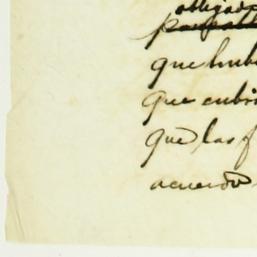 obligad
que hub
que cubri
que las f
acuerdo